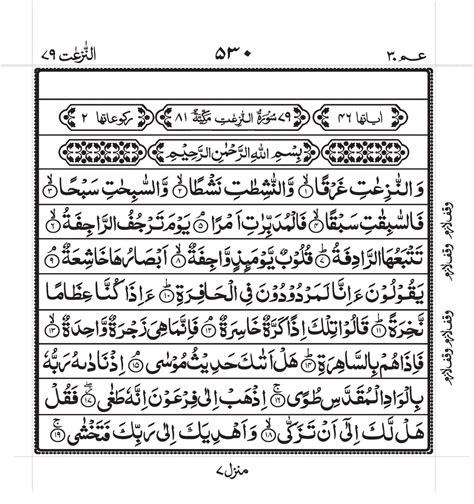 عـم ٣٠ ٥٣٠ النّٰزعٰت ٧٩
اٰیاتها ٤٦ ٧٩ سُوْرَةُ النّٰزِعٰتِ مَكِّيَّةٌ ٨١ رکوعاتها ٢
بِسْمِ اللهِ الرَّحْمٰنِ الرَّحِيْمِ
وَالنّٰزِعٰتِ غَرْقًا ۙ﴿١﴾ وَّالنّٰشِطٰتِ نَشْطًا ۙ﴿٢﴾ وَّالسّٰبِحٰتِ سَبْحًا ۙ﴿٣﴾
فَالسّٰبِقٰتِ سَبْقًا ۙ﴿٤﴾ فَالْمُدَبِّرٰتِ اَمْرًا ۘ﴿٥﴾ يَوْمَ تَرْجُفُ الرَّاجِفَةُ ۙ﴿٦﴾
تَتْبَعُهَا الرَّادِفَةُ ؕ﴿٧﴾ قُلُوْبٌ يَّوْمَىِٕذٍ وَّاجِفَةٌ ۙ﴿٨﴾ اَبْصَارُهَا خَاشِعَةٌ ۘ﴿٩﴾
يَقُوْلُوْنَ ءَاِنَّا لَمَرْدُوْدُوْنَ فِى الْحَافِرَةِ ؕ﴿١٠﴾ ءَاِذَا كُنَّا عِظَامًا
نَّخِرَةً ؕ﴿١١﴾ قَالُوْا تِلْكَ اِذًا كَرَّةٌ خَاسِرَةٌ ۘ﴿١٢﴾ فَاِنَّمَا هِىَ زَجْرَةٌ وَّاحِدَةٌ ۙ﴿١٣﴾
فَاِذَا هُمْ بِالسَّاهِرَةِ ؕ﴿١٤﴾ هَلْ اَتٰىكَ حَدِيْثُ مُوْسٰى ۘ﴿١٥﴾ اِذْ نَادٰىهُ رَبُّهٗ
بِالْوَادِ الْمُقَدَّسِ طُوًى ۚ﴿١٦﴾ اِذْهَبْ اِلٰى فِرْعَوْنَ اِنَّهٗ طَغٰى ۖ﴿١٧﴾ فَقُلْ
هَلْ لَّكَ اِلٰٓى اَنْ تَزَكّٰى ۙ﴿١٨﴾ وَاَهْدِيَكَ اِلٰى رَبِّكَ فَتَخْشٰى ۚ﴿١٩﴾
وقف لازم وقف لازم
وقف لازم وقف لازم
منزل ٧